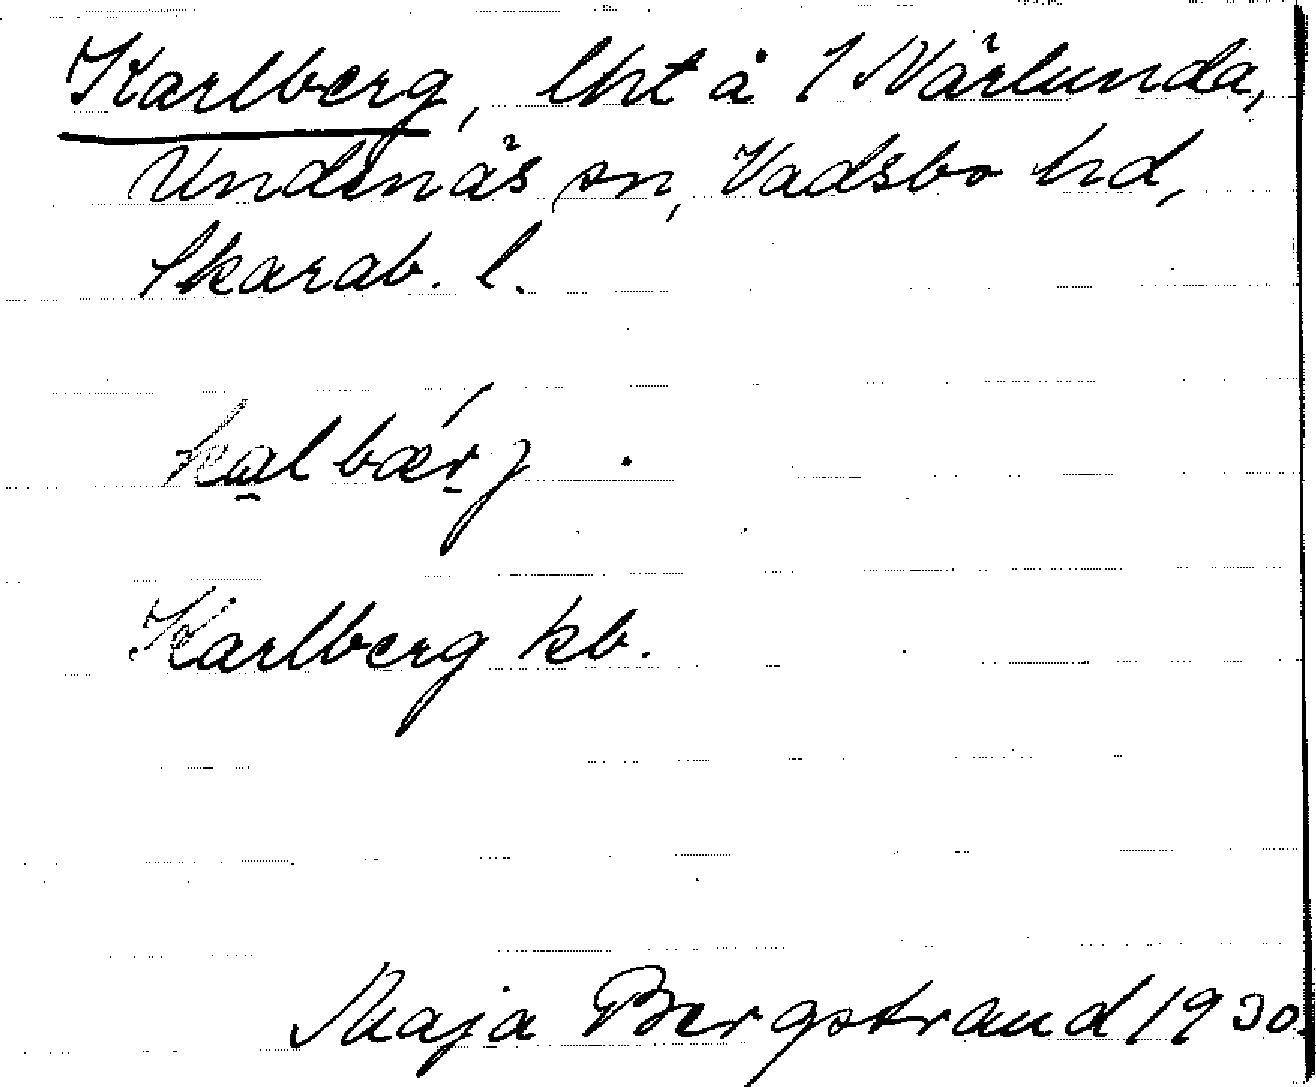 Karlberg, lht å 1 Närlunda,
Undenäs sn, Vadsbo hd,
Skarab. l.
kalbærj .
Karlberg kb.
Maja Bergstrand 1930.